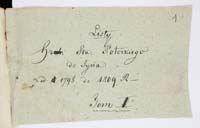 1
Listy
Hr. Sta. Potockiego
do Syna
od 1798, do 1809 R.
Tom I